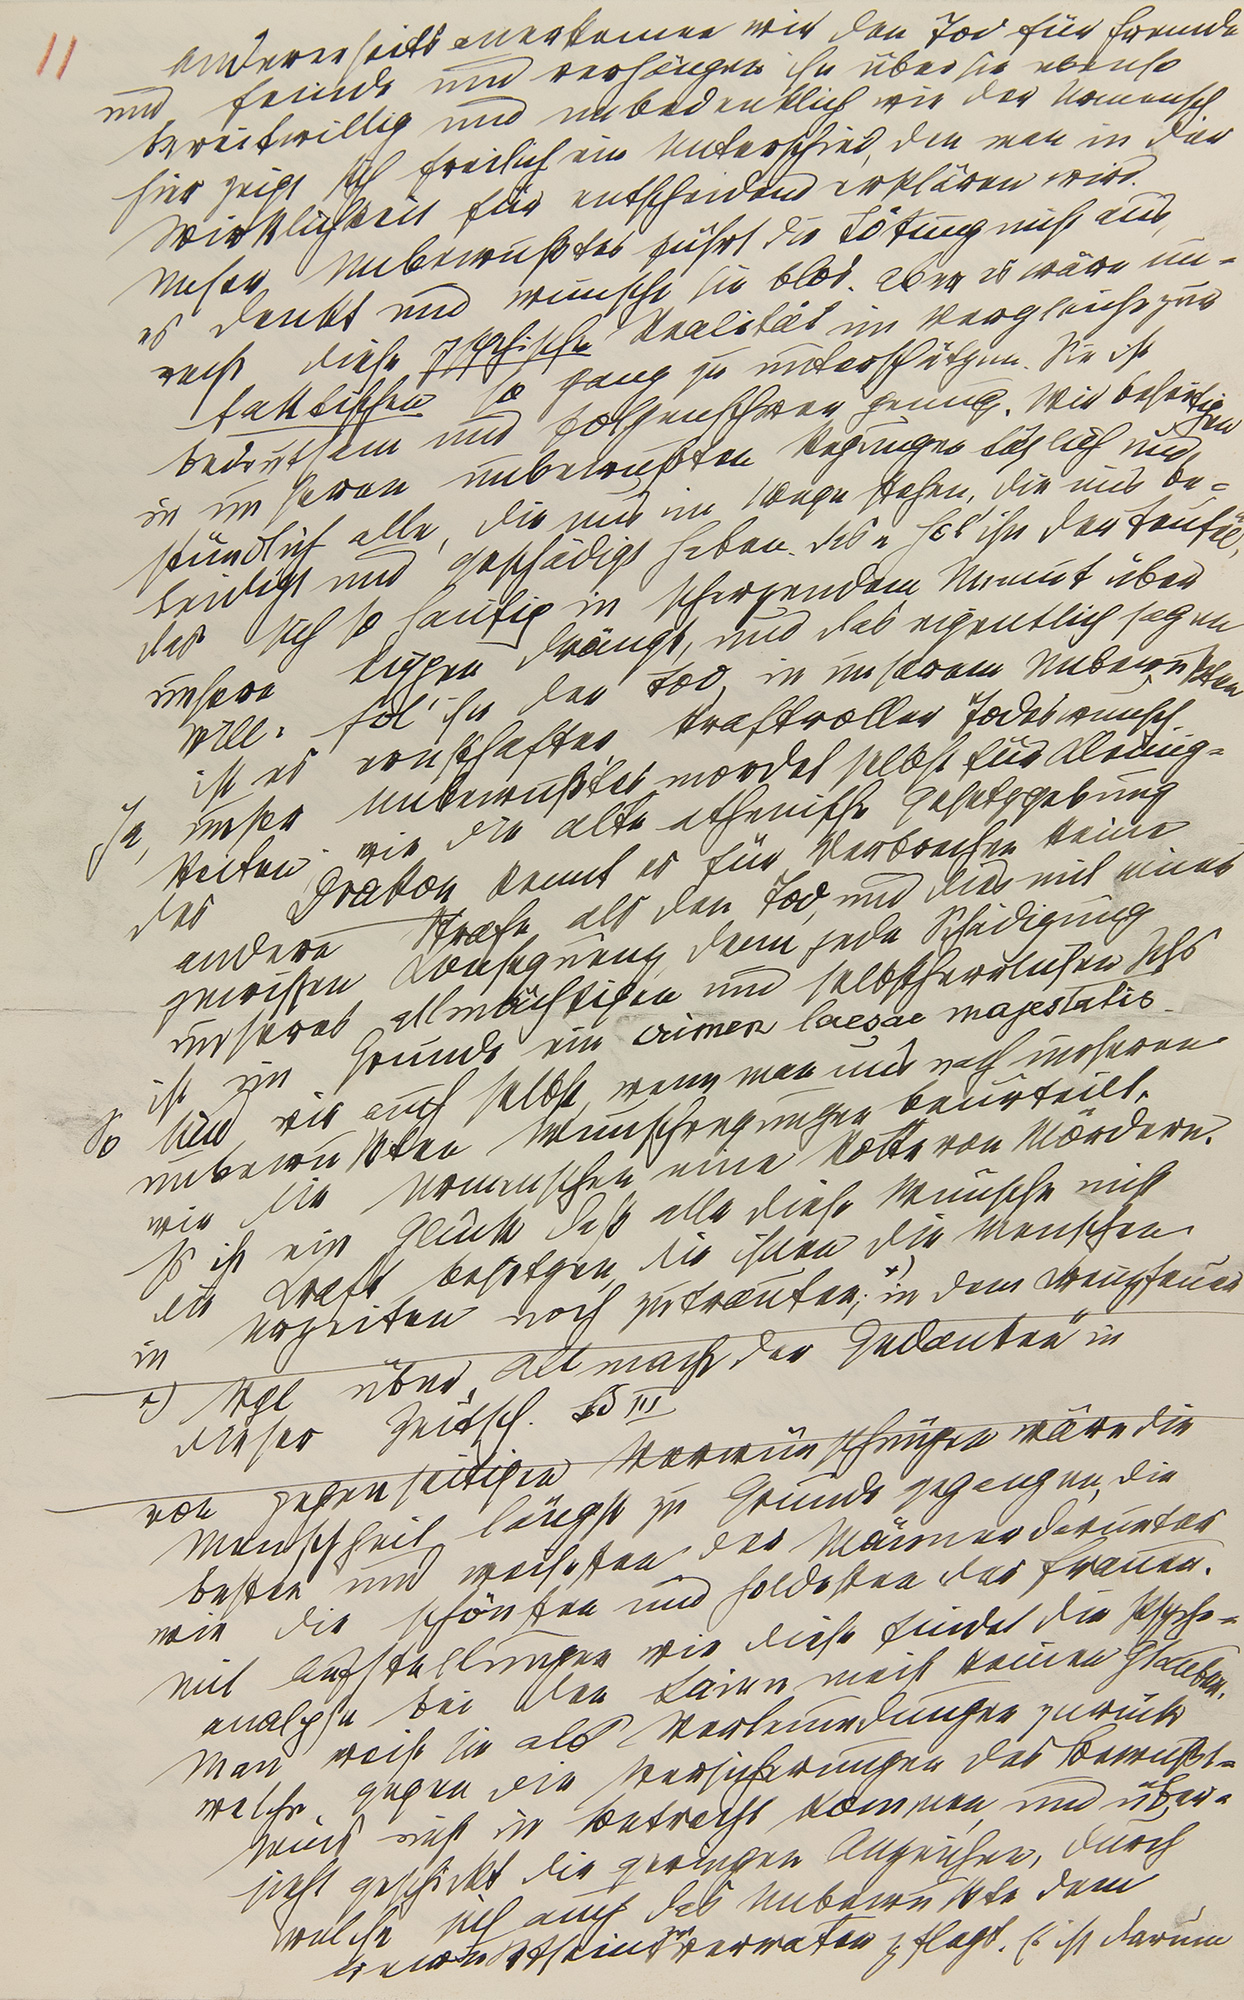 11
Andererseits anerkennen wir den Tod für Fremde
und Feinde und verhängen ihn über sie ebenso
bereitwillig und unbedenklich wie der Urmensch
hier zeigt sich freilich ein Unterschied, den man in der
Wirklichkeit für entscheidend erklären wird.
Unser Unbewußtes führt die Tötung nicht aus,
es denkt und wünscht sie blos. Aber es wäre un-
recht diese psychische Realität im Vergleiche zur
faktischen so ganz zu unterschätzen. Sie ist
bedeutsam und folgenschwer genug. Wir beseitigen
in unseren unbewußten Regungen täglich und
stündlich alle, die uns im Wege stehen, die uns be-
leidigt und geschädigt haben. das „Hol' ihn der Teufel,
das sich so häufig in scherzendem Unmut über
unsere Lippen drängt, und das eigentlich sagen
will: Hol' ihn der Tod, in unserem Unbewußten
ist es ernsthafter kraftvoller Todeswunsch.
Ja, unser Unbewußtes mordet selbst für Kleinig-
keiten; wie die alte athenische Gesetzgebung
des Drakon kennt es für Verbrechen keine
andere Strafe als den Tod, und dies mit einer
gewissen Konsequenz, denn jede Schädigung
unseres allmächtigen und selbstherrlichen Ichs
ist im Grunde ein crimen laesae majestatis.
So sind wir auch selbst, wenn man uns nach unseren
unbewußten Wunschregungen beurteilt,
wie die Urmenschen eine Rotte von Mördern.
Es ist ein Glück daß alle diese Wünsche nicht
die Kraft besitzen, die ihnen die Menschen
in Urzeiten noch zutrauten; x) in dem Kreuzfeuer
x) Vgl über „Allmacht der Gedanken" in
dieser Zeitsch. Bd III
von gegenseitigen Verwünschungen wäre die
Menschheit längst zu Grunde gegangen, die
besten und weisesten der Männer darunter
wie die schönsten und holdesten der Frauen.
Mit Aufstellungen wie diese findet die Psycho-
analyse bei den Laien meist keinen Glauben.
Man weist sie als Verleumdungen zurück
welche gegen die Versicherungen des Bewußt-
seins nicht in Betracht kommen, und über-
sieht geschickt die geringen Anzeichen, durch
welche sich auch das Unbewußte dem
Bewußtsein zu verraten pflegt. Es ist darum